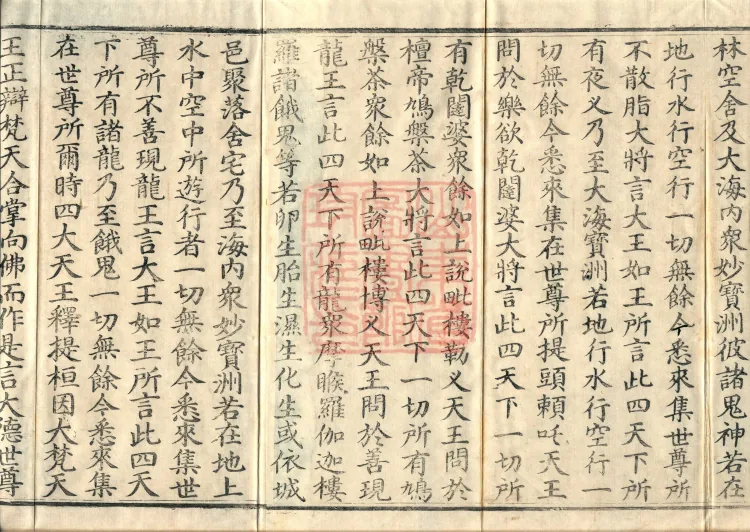 林空舍及大海內衆妙寶洲彼諸鬼神若在
地行水行空行一切無餘今悉來集世尊所
不散脂大將言大王如王所言此四天下所
有夜叉乃至大海寶洲若地行水行空行一
切無餘今悉來集在世尊所提頭頼吒天王
問於樂欲乾闥婆大將言此四天下一切所
有乾闥婆衆餘如上說毗樓勒叉天王問於
檀帝鳩槃茶大將言此四天下一切所有鳩
槃茶衆餘如上說毗樓博叉天王問於善現
龍王言此四天下所有龍衆摩睺羅伽迦樓
羅諸餓鬼等若卵生胎生濕生化生或依城
邑聚落舍宅乃至海內衆妙寶洲若在地上
水中空中所遊行者一切無餘今悉來集世
尊所不善現龍王言大王如王所言此四天
下所有諸龍乃至餓鬼一切無餘今悉來集
在世尊所爾時四大天王釋提桓因大梵天
王正辯梵天合掌向佛而作是言大德世尊